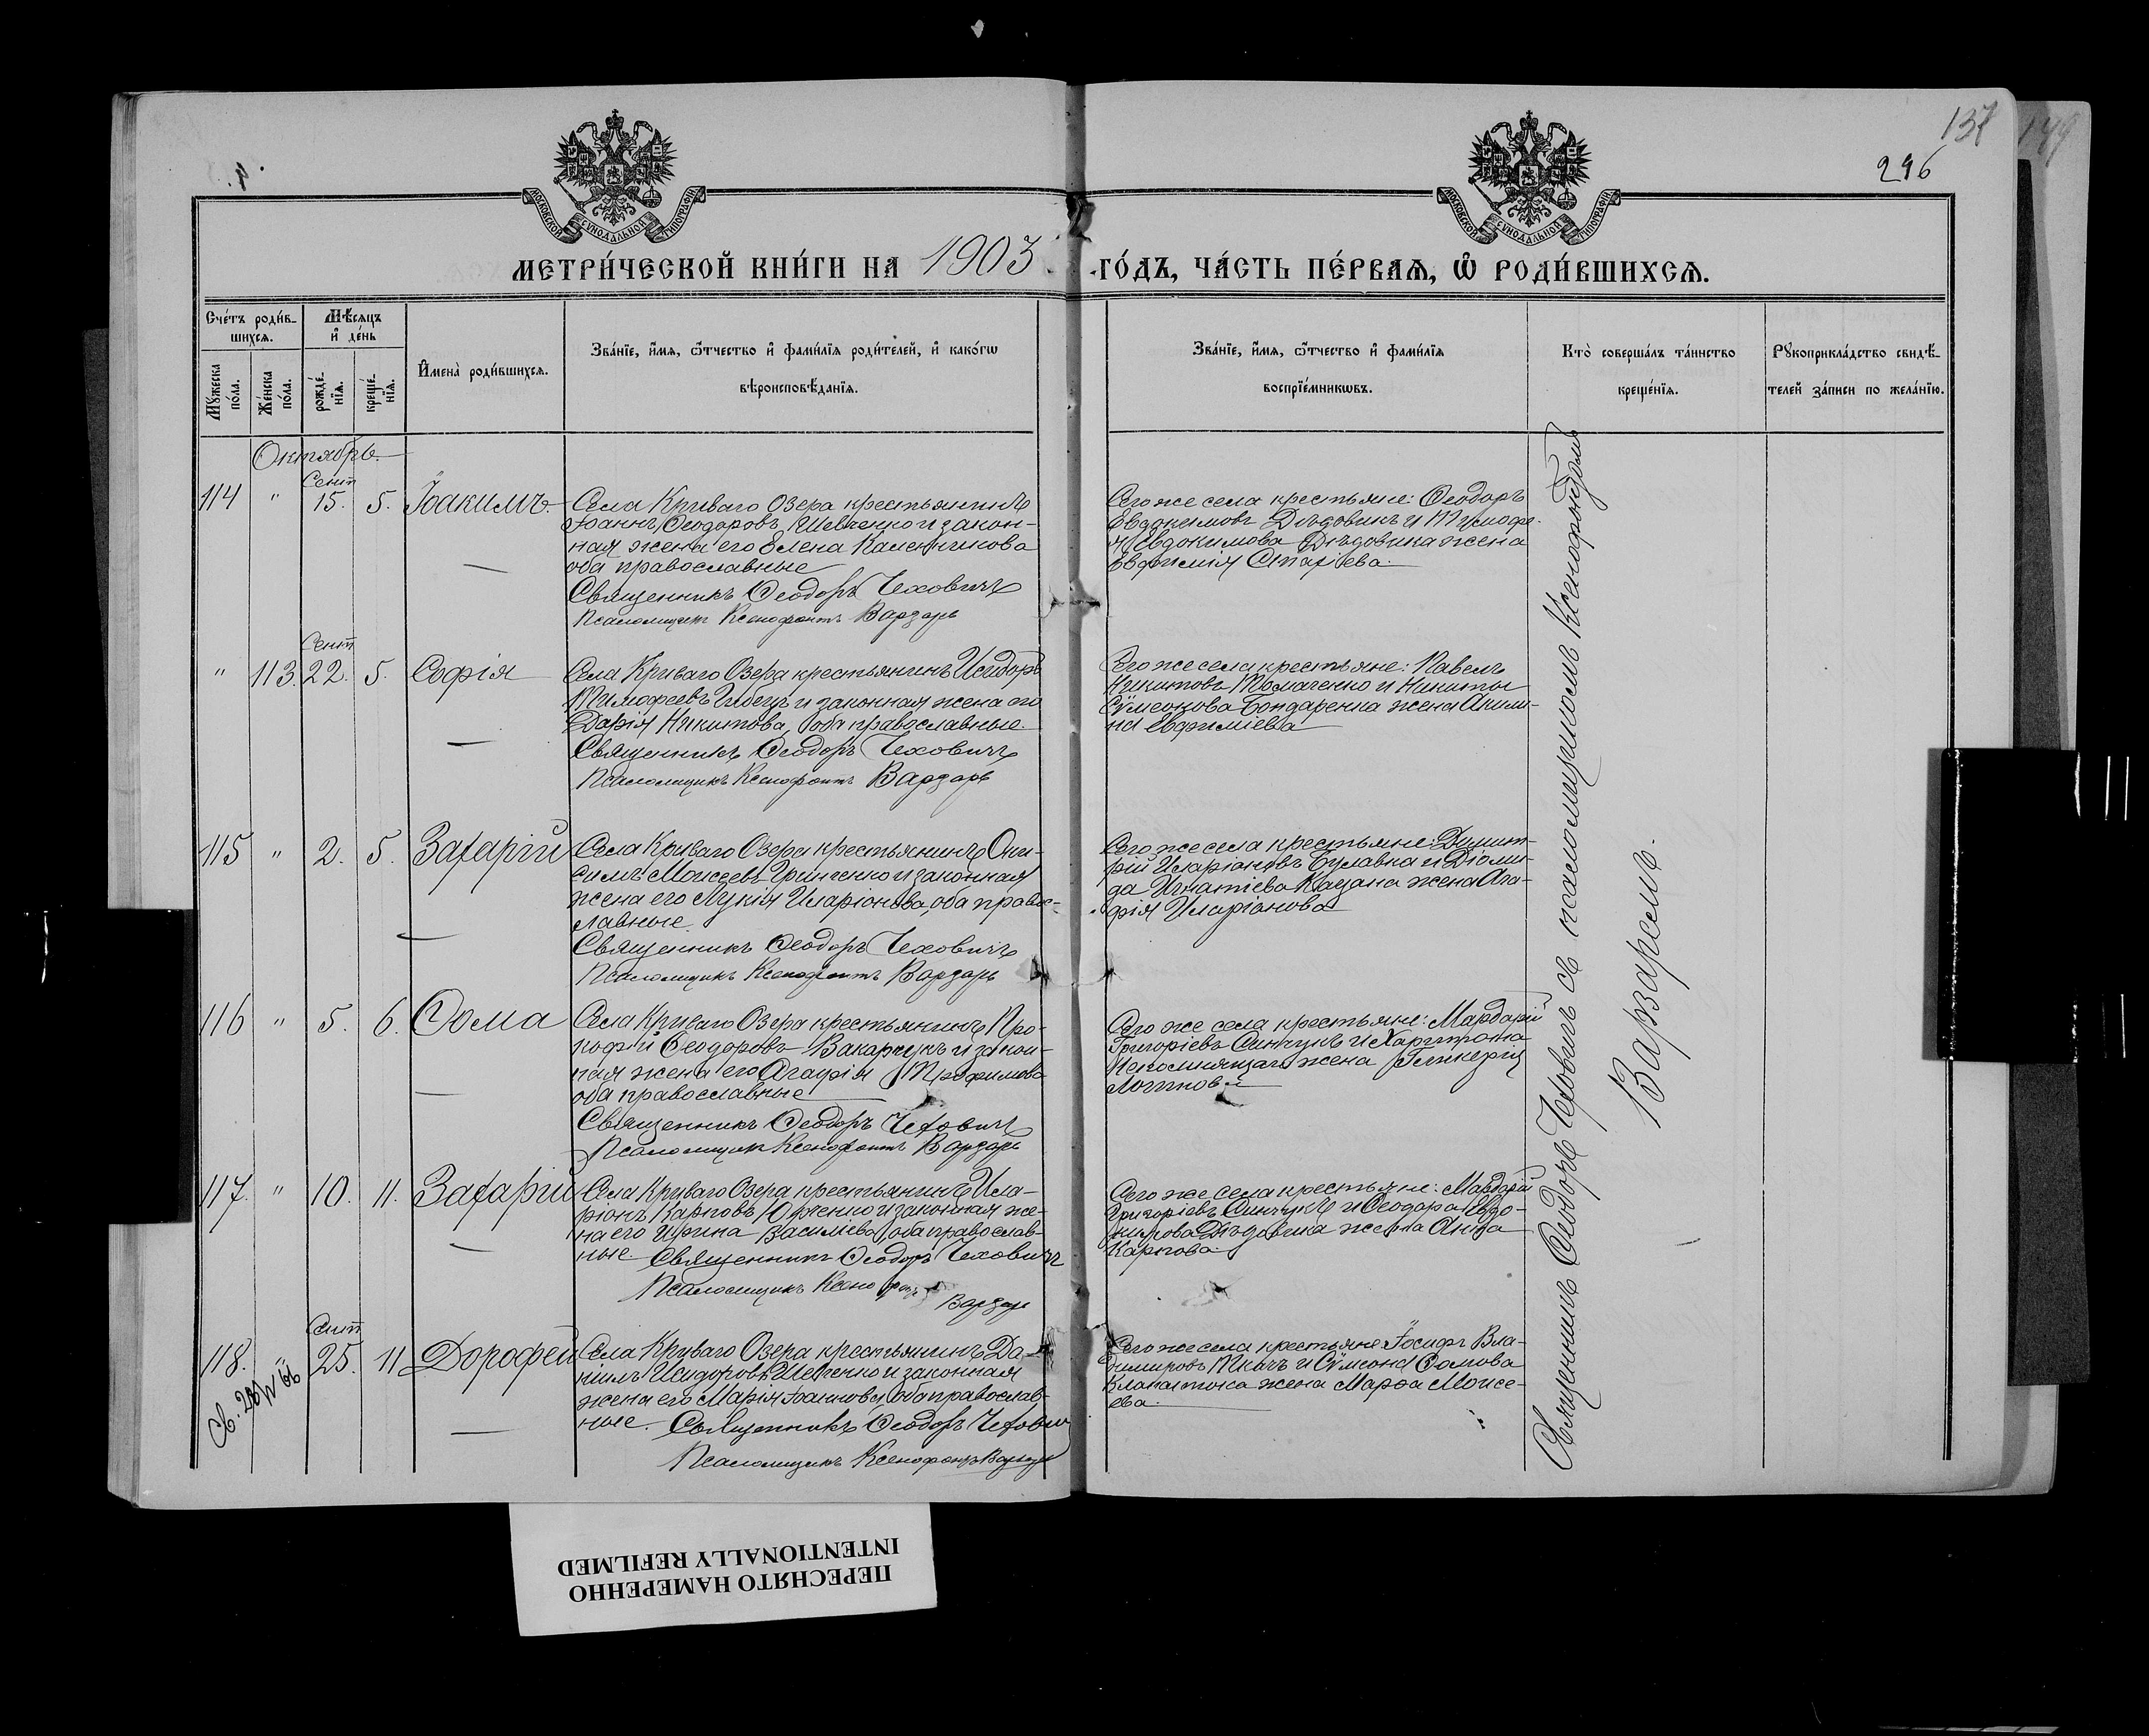 137
296
МОСКОВСКОЙ СѴНОДАЛЬНОЙ ТИПОГРАФІИ
МОСКОВСКОЙ СѴНОДАЛЬНОЙ ТИПОГРАФІИ
МЕТРИ́ЧЕСКОЙ КНИ́ГИ НА 1903 ГО́ДЪ, ЧА́СТЬ ПЕ́РВАѦ, Ѡ РОДИ́ВШИХСѦ.
Сче́тъ роди́в-
шихсѧ.
Мѣ́сѧцъ
и҆ де́нь
Мꙋ́жеска
по́ла.
Же́нска
по́ла.
рожде́-
нїѧ.
креще́-
нїѧ.
И҆мена̀ роди́вшихсѧ.
Зва́нїе, и҆́мѧ, ѻ҆́тчество и҆ фами́лїѧ роди́телей, и҆ како́гѡ
вѣроисповѣ́данїѧ.
Зва́нїе, и҆́мѧ, ѻ҆́тчество и҆ фами́лїѧ
воспрїе́мникѡвъ.
Кто̀ соверша́лъ та́инство
креще́нїѧ.
Рꙋкоприкла́дство свидѣ́-
телей за́писи по жела́нїю.
Октябрь.
114 " Сент 15. 5. Іоакимъ
Села Криваго Озера крестьянинъ
Іоаннъ Ѳеодоровъ Шевченко и закон-
ная жена его Елена Каленникова
оба православные
Священникъ Ѳеодоръ Чеховичъ
Псаломщикъ Ксенофонтъ Варзарь
Сего же села крестьяне: Ѳеодоръ
Евдокимовъ Дѣдовикъ и Тимоѳе-
я Евдокимова Дѣдовика жена
Евфимія
" 113. Сент 22. 5. Софія
Села Криваго Озера крестьянинъ Исидоръ
Тимоѳеевъ и законная жена его
Дарія Никитова, оба православные
Священникъ Ѳеодоръ Чеховичъ
Псаломщикъ Ксенофонтъ Варзарь
Сего же села крестьяне: Павелъ
Никитовъ Томаченко и Никиты
Сѵмеонова Бондаренка жена Акили-
на Евфиміева
115 " 2. 5. Захарій
Села Криваго Озера крестьянинъ Они-
симъ Моисеевъ Гринченко и законная
жена его Лукія Иларіонова, оба правос-
лавные.
Священникъ Ѳеодоръ Чеховичъ
Псаломщикъ Ксенофонтъ Варзарь
Сего же села крестьяне: Димит-
рій Иларіоновъ Булавка и Діоми-
да Игнатіева жена Ага-
фія Иларіонова
116 " 5. 6. Ѳома
Села Криваго Озера крестьянинъ Про-
кофій Ѳеодоровъ Вакарчукъ и закон-
ная жена его Агафія Трофимова
оба православные
Священникъ Ѳеодоръ Чеховичъ
Псаломщикъ Ксенофонтъ Варзарь
Сего же села крестьяне: Мардарій
Григоріевъ и Харитона
Непомнящаго жена Гликерія
Логинова
117. " 10. 11. Захарій
Села Криваго Озера крестьянинъ Ила-
ріонъ Карповъ и законная же-
на его Ирина Василіева, оба православ-
ные. Священникъ Ѳеодоръ Чеховичъ
Псаломщикъ Ксенофонтъ
Варзарь
Сего же села крестьяне: Мардарій
Григоріевъ и Ѳеодора Евдо-
кимова Дѣдовика жена Анна
Карпова
118. " Сент 25. 11 Дорофей
Села Криваго Озера крестьянинъ Да-
ніилъ Исидоровъ Шевченко и законная
жена его Марія Іоаннова, оба православ-
ные. Священникъ Ѳеодоръ Чеховичъ
Псаломщикъ Ксенофонтъ Варзарь
Сего же села крестьяне: Іосифъ Вла-
димировъ Ткачъ и Сѵмеона Ѳомова
жена Марѳа Моисе-
ева.
Священникъ Ѳеодоръ Чеховичъ съ псаломщикомъ Ксенофонтомъ
Варзаремъ.
ПЕРЕСНЯТО НАМЕРЕННО
INTENTIONALLY REFILMED